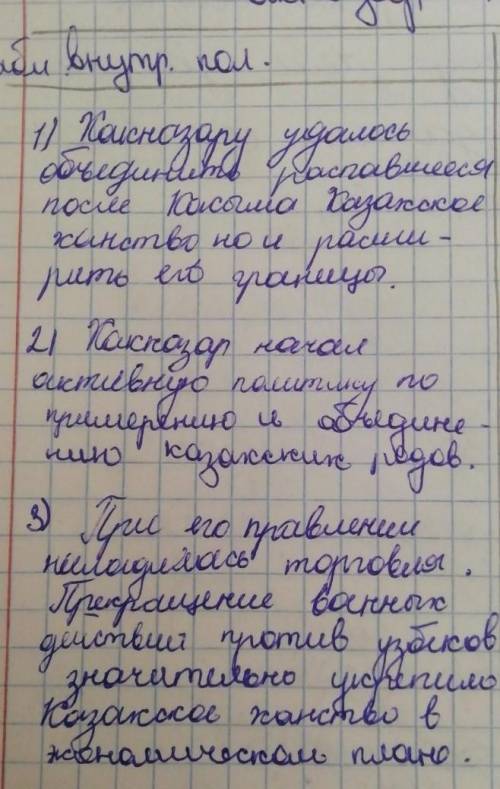 внутр. пол.
1) Хакназару удалось
объединить распавшееся
после Касыма Казахское
ханство но и расши-
рить его границы.
2) Хакназар начал
активную политику по
примерению и объедине-
нию казахских родов.
3) При его правлении
наладилась торговля.
Прекращение военных
действий против узбеков
значительно укрепило
Казахское ханство в
экономическом плане.